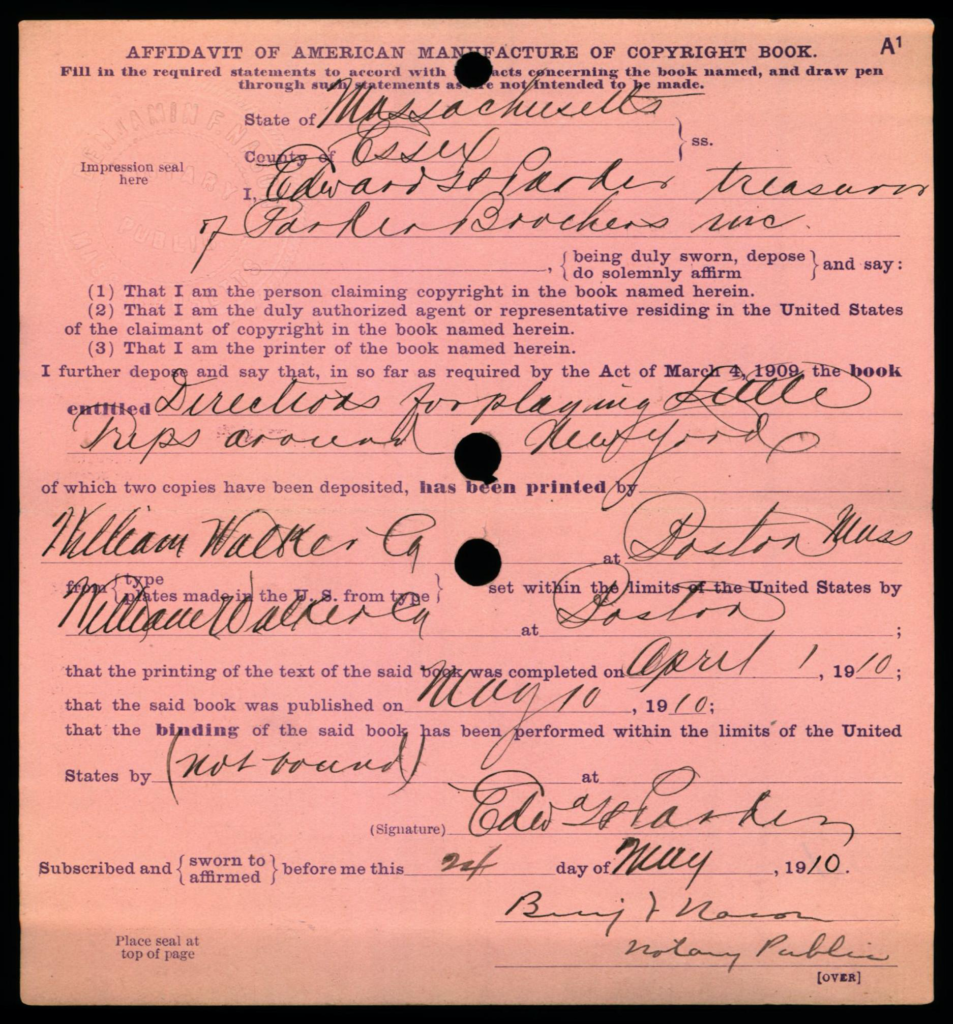 AFFIDAVIT OF AMERICAN MANUFACTURE OF COPYRIGHT BOOK. A¹
Fill in the required statements to accord with facts concerning the book named, and draw pen
through such statements as are not intended to be made.
State of Massachusetts
County of Essex } ss.
Impression seal
here
I, Edward H Parker treasurer
of Parker Brothers inc.
, { being duly sworn, depose
do solemnly affirm } and say:
(1) That I am the person claiming copyright in the book named herein.
(2) That I am the duly authorized agent or representative residing in the United States
of the claimant of copyright in the book named herein.
(3) That I am the printer of the book named herein.
I further depose and say that, in so far as required by the Act of March 4, 1909, the book
entitled Directions for playing Little
Trips around New York
of which two copies have been deposited, has been printed by
William Walker Co at Boston Mass
from { type
plates made in the U. S. from type } set within the limits of the United States by
William Walker Co at Boston ;
that the printing of the text of the said book was completed on April 1, 1910;
that the said book was published on May 10, 1910;
that the binding of the said book has been performed within the limits of the United
States by (not bound) at
(Signature) Edw H Parker
Subscribed and { sworn to
affirmed } before me this 24 day of May, 1910.
Benj F Nason
Notary Public
Place seal at
top of page
[OVER]